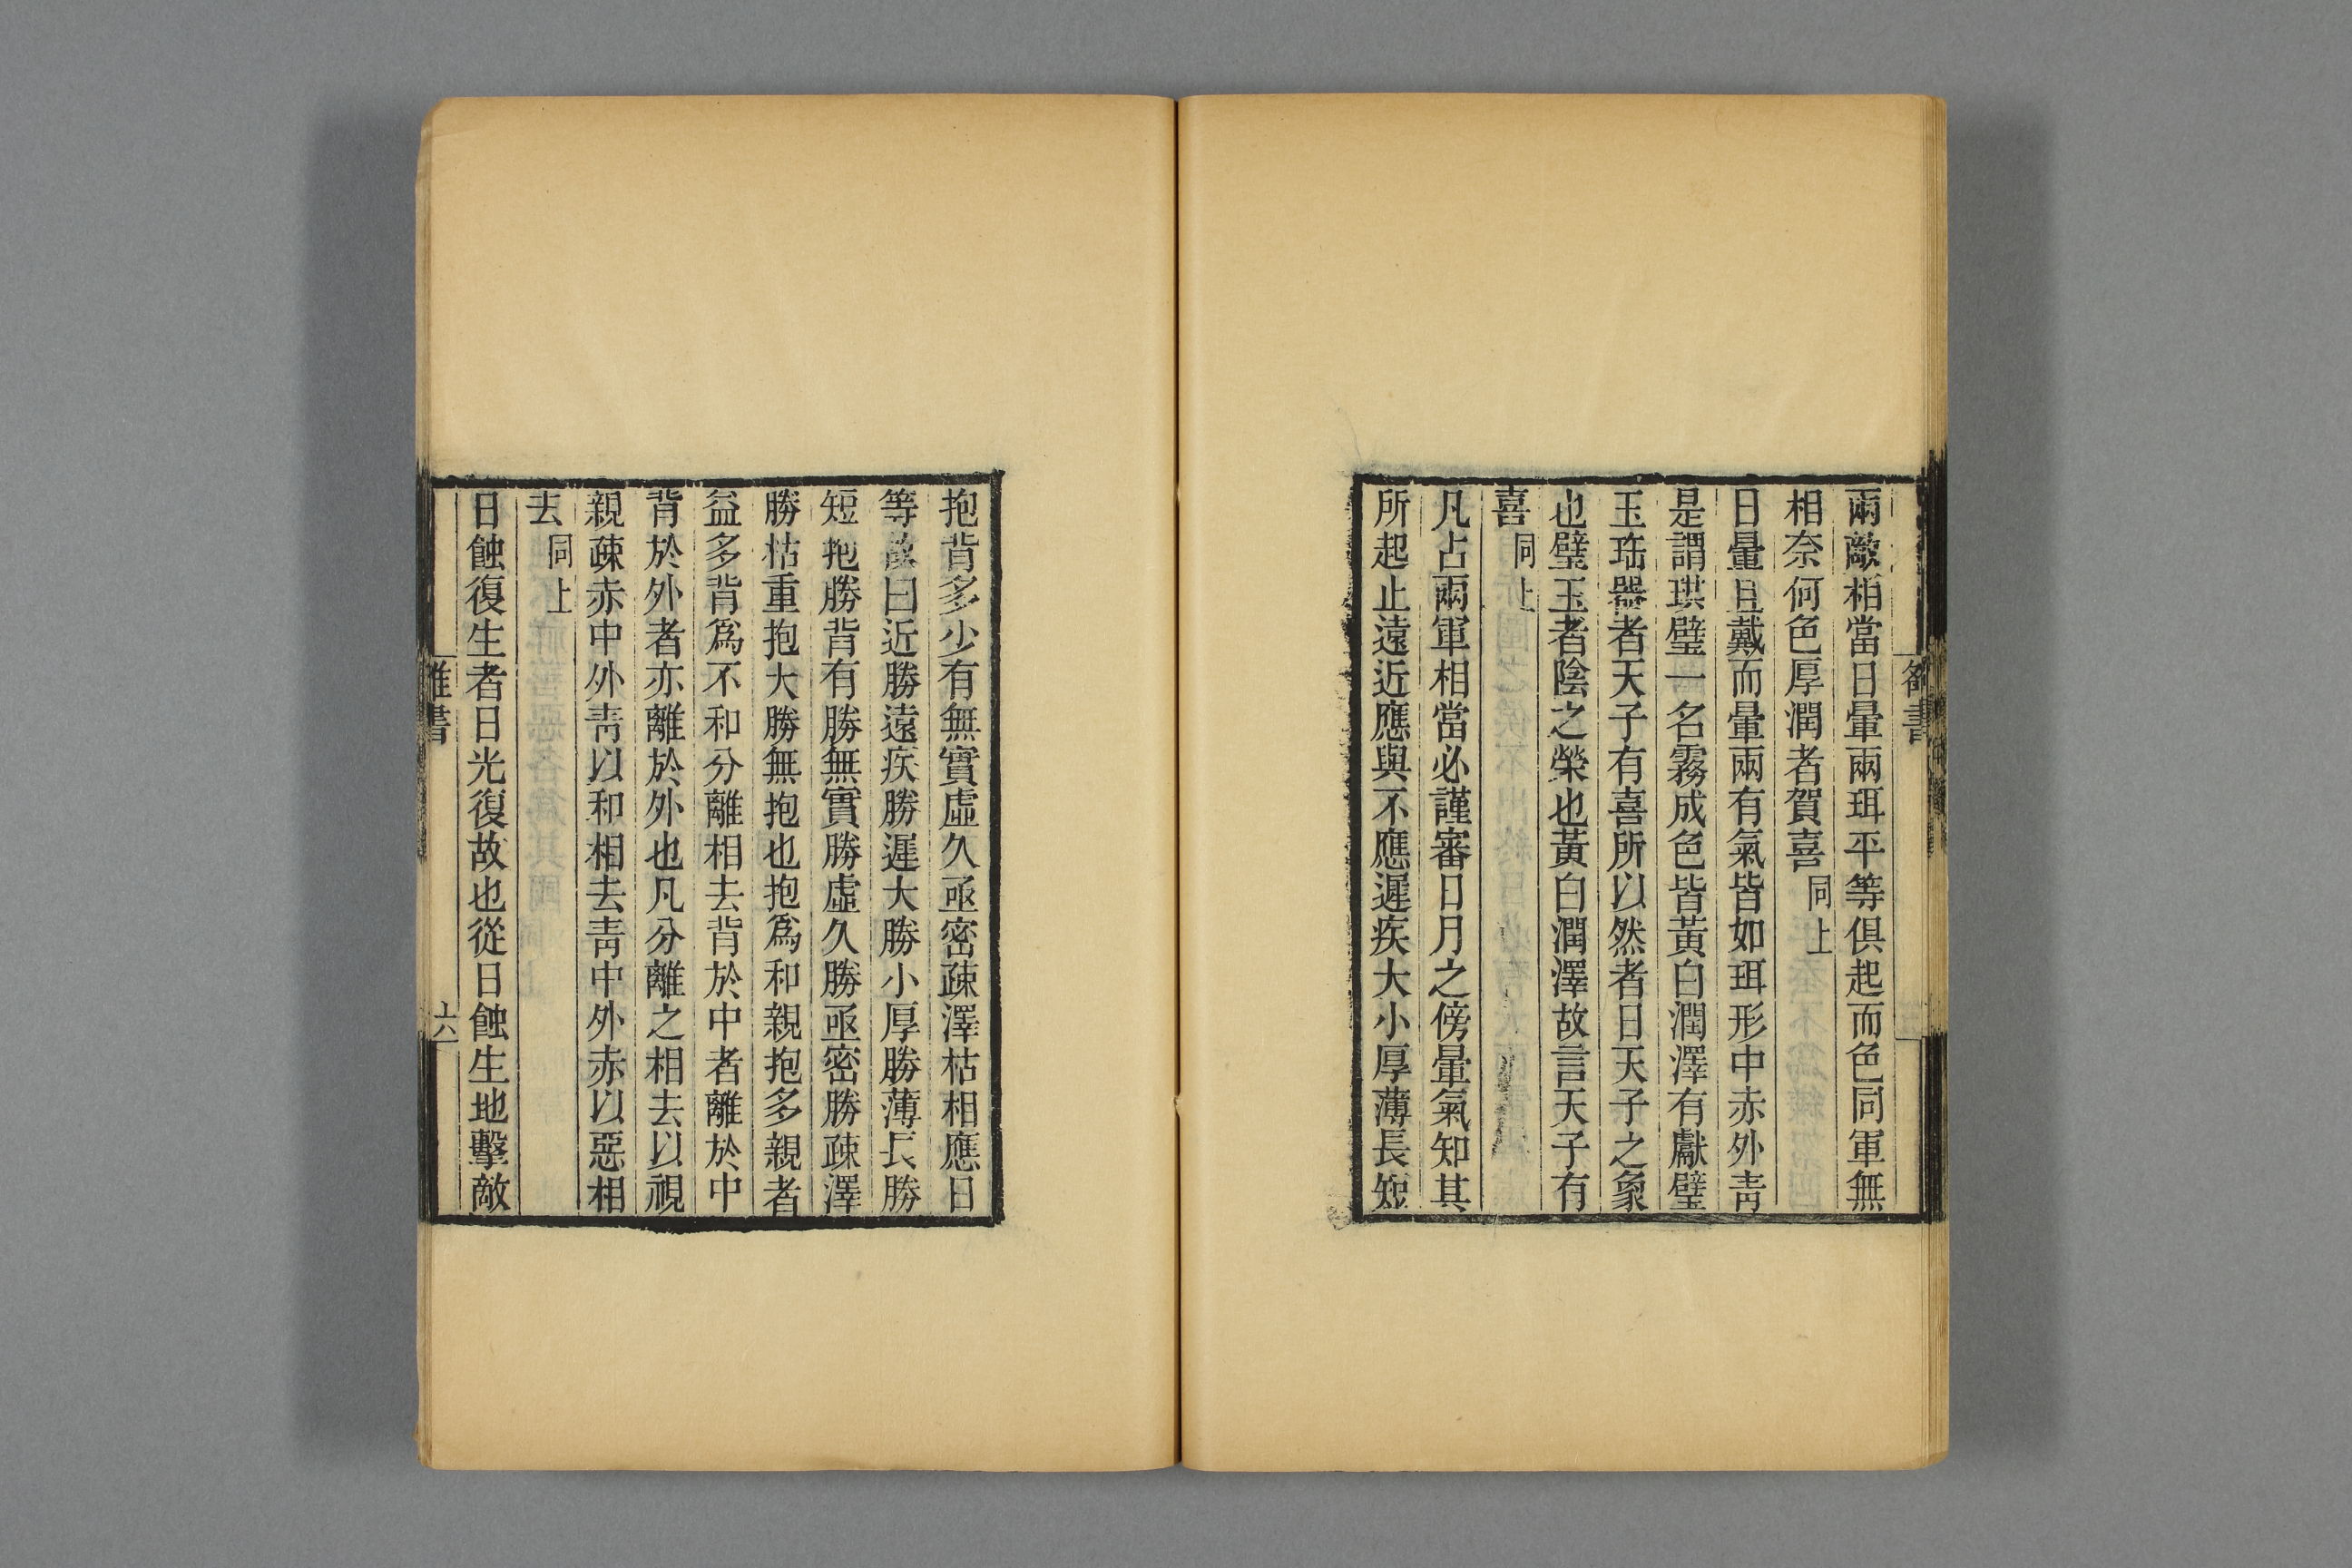 兩敵相當日暈兩珥平等俱起而色同軍無
相奈何色厚潤者賀喜同上
日暈且戴而暈兩有氣皆如珥形中赤外青
是謂珙璧一名霧成色皆黃白潤澤有獻璧
玉珤器者天子有喜所以然者日天子之象
也璧玉者陰之榮也黃白潤澤故言天子有
喜同上
凡占兩軍相當必謹審日月之傍暈氣知其
所起止遠近應與不應遲疾大小厚薄長短
抱背多少有無實虛久亟密疎澤枯相應日
等 曰近勝遠疾勝遲大勝小厚勝薄長勝
短抱勝背有勝無實勝虛久勝亟密勝疎澤
勝枯重抱大勝無抱也抱爲和親抱多親者
益多背爲不和分離相去背於中者離於中
背於外者亦離於外也凡分離之相去以視
親疎赤中外靑以和相去靑中外赤以惡相
去同上
日蝕復生者日光復故也從日蝕生地擊敵
雒書
六